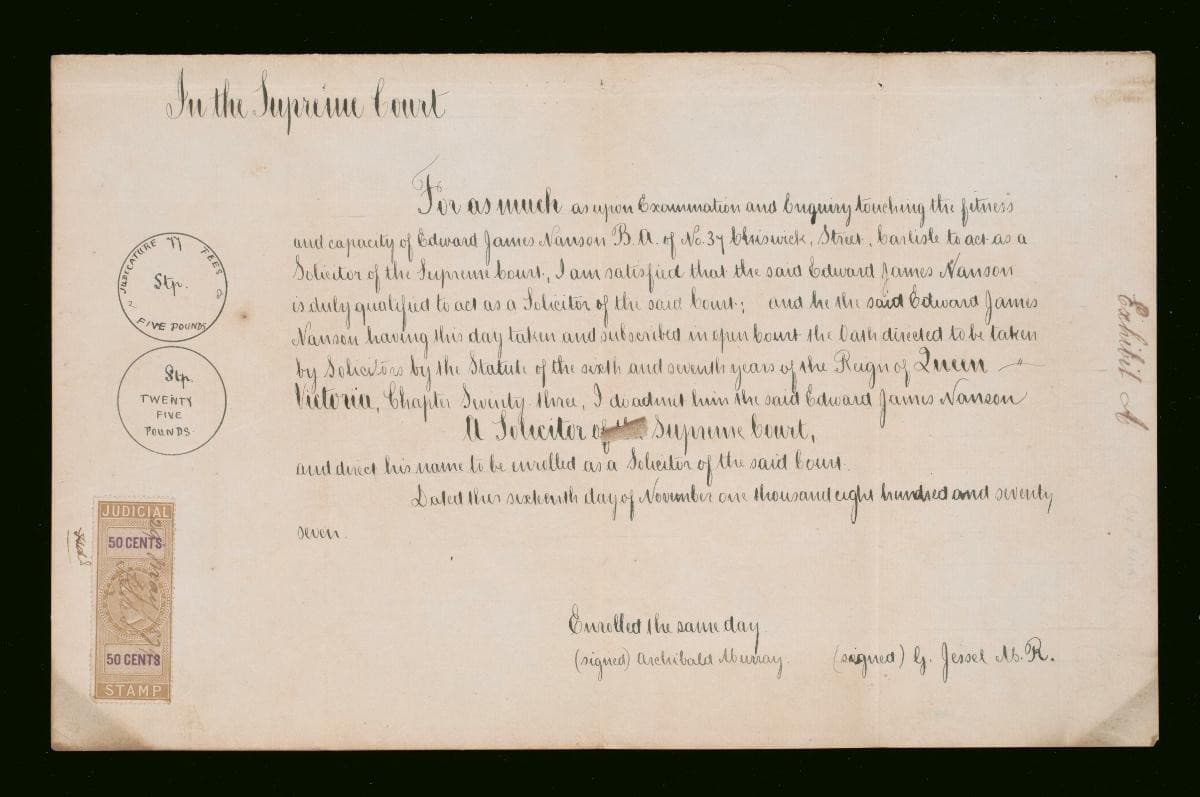 In the Supreme Court
For as much as upon Examination and Enquiry touching the fitness
and capacity of Edward James Nanson B.A. of No. 37 Chiswick, Street, Carlisle to act as a
Solicitor of the Supreme Court, I am satisfied that the said Edward James Nanson
is duly qualified to act as a Solicitor of the said Court; and he the said Edward James
Nanson having this day taken and subscribed in open Court the Oath directed to be taken
by Solicitors by the Statute of the sixth and seventh years of the Reign of Queen
Victoria, Chapter Seventy-three, I do admit him the said Edward James Nanson
A Solicitor of the Supreme Court,
and direct his name to be enrolled as a Solicitor of the said Court.
Dated this sixteenth day of November one thousand eight hundred and seventy
seven.
Enrolled the same day
(signed) Archibald Murray. (signed) G. Jessel M.R.
JUDICATURE 77 FEES
Stp.
FIVE POUNDS
Stp.
TWENTY
FIVE
POUNDS
JUDICIAL
50 CENTS
50 CENTS
STAMP
Exhibit A